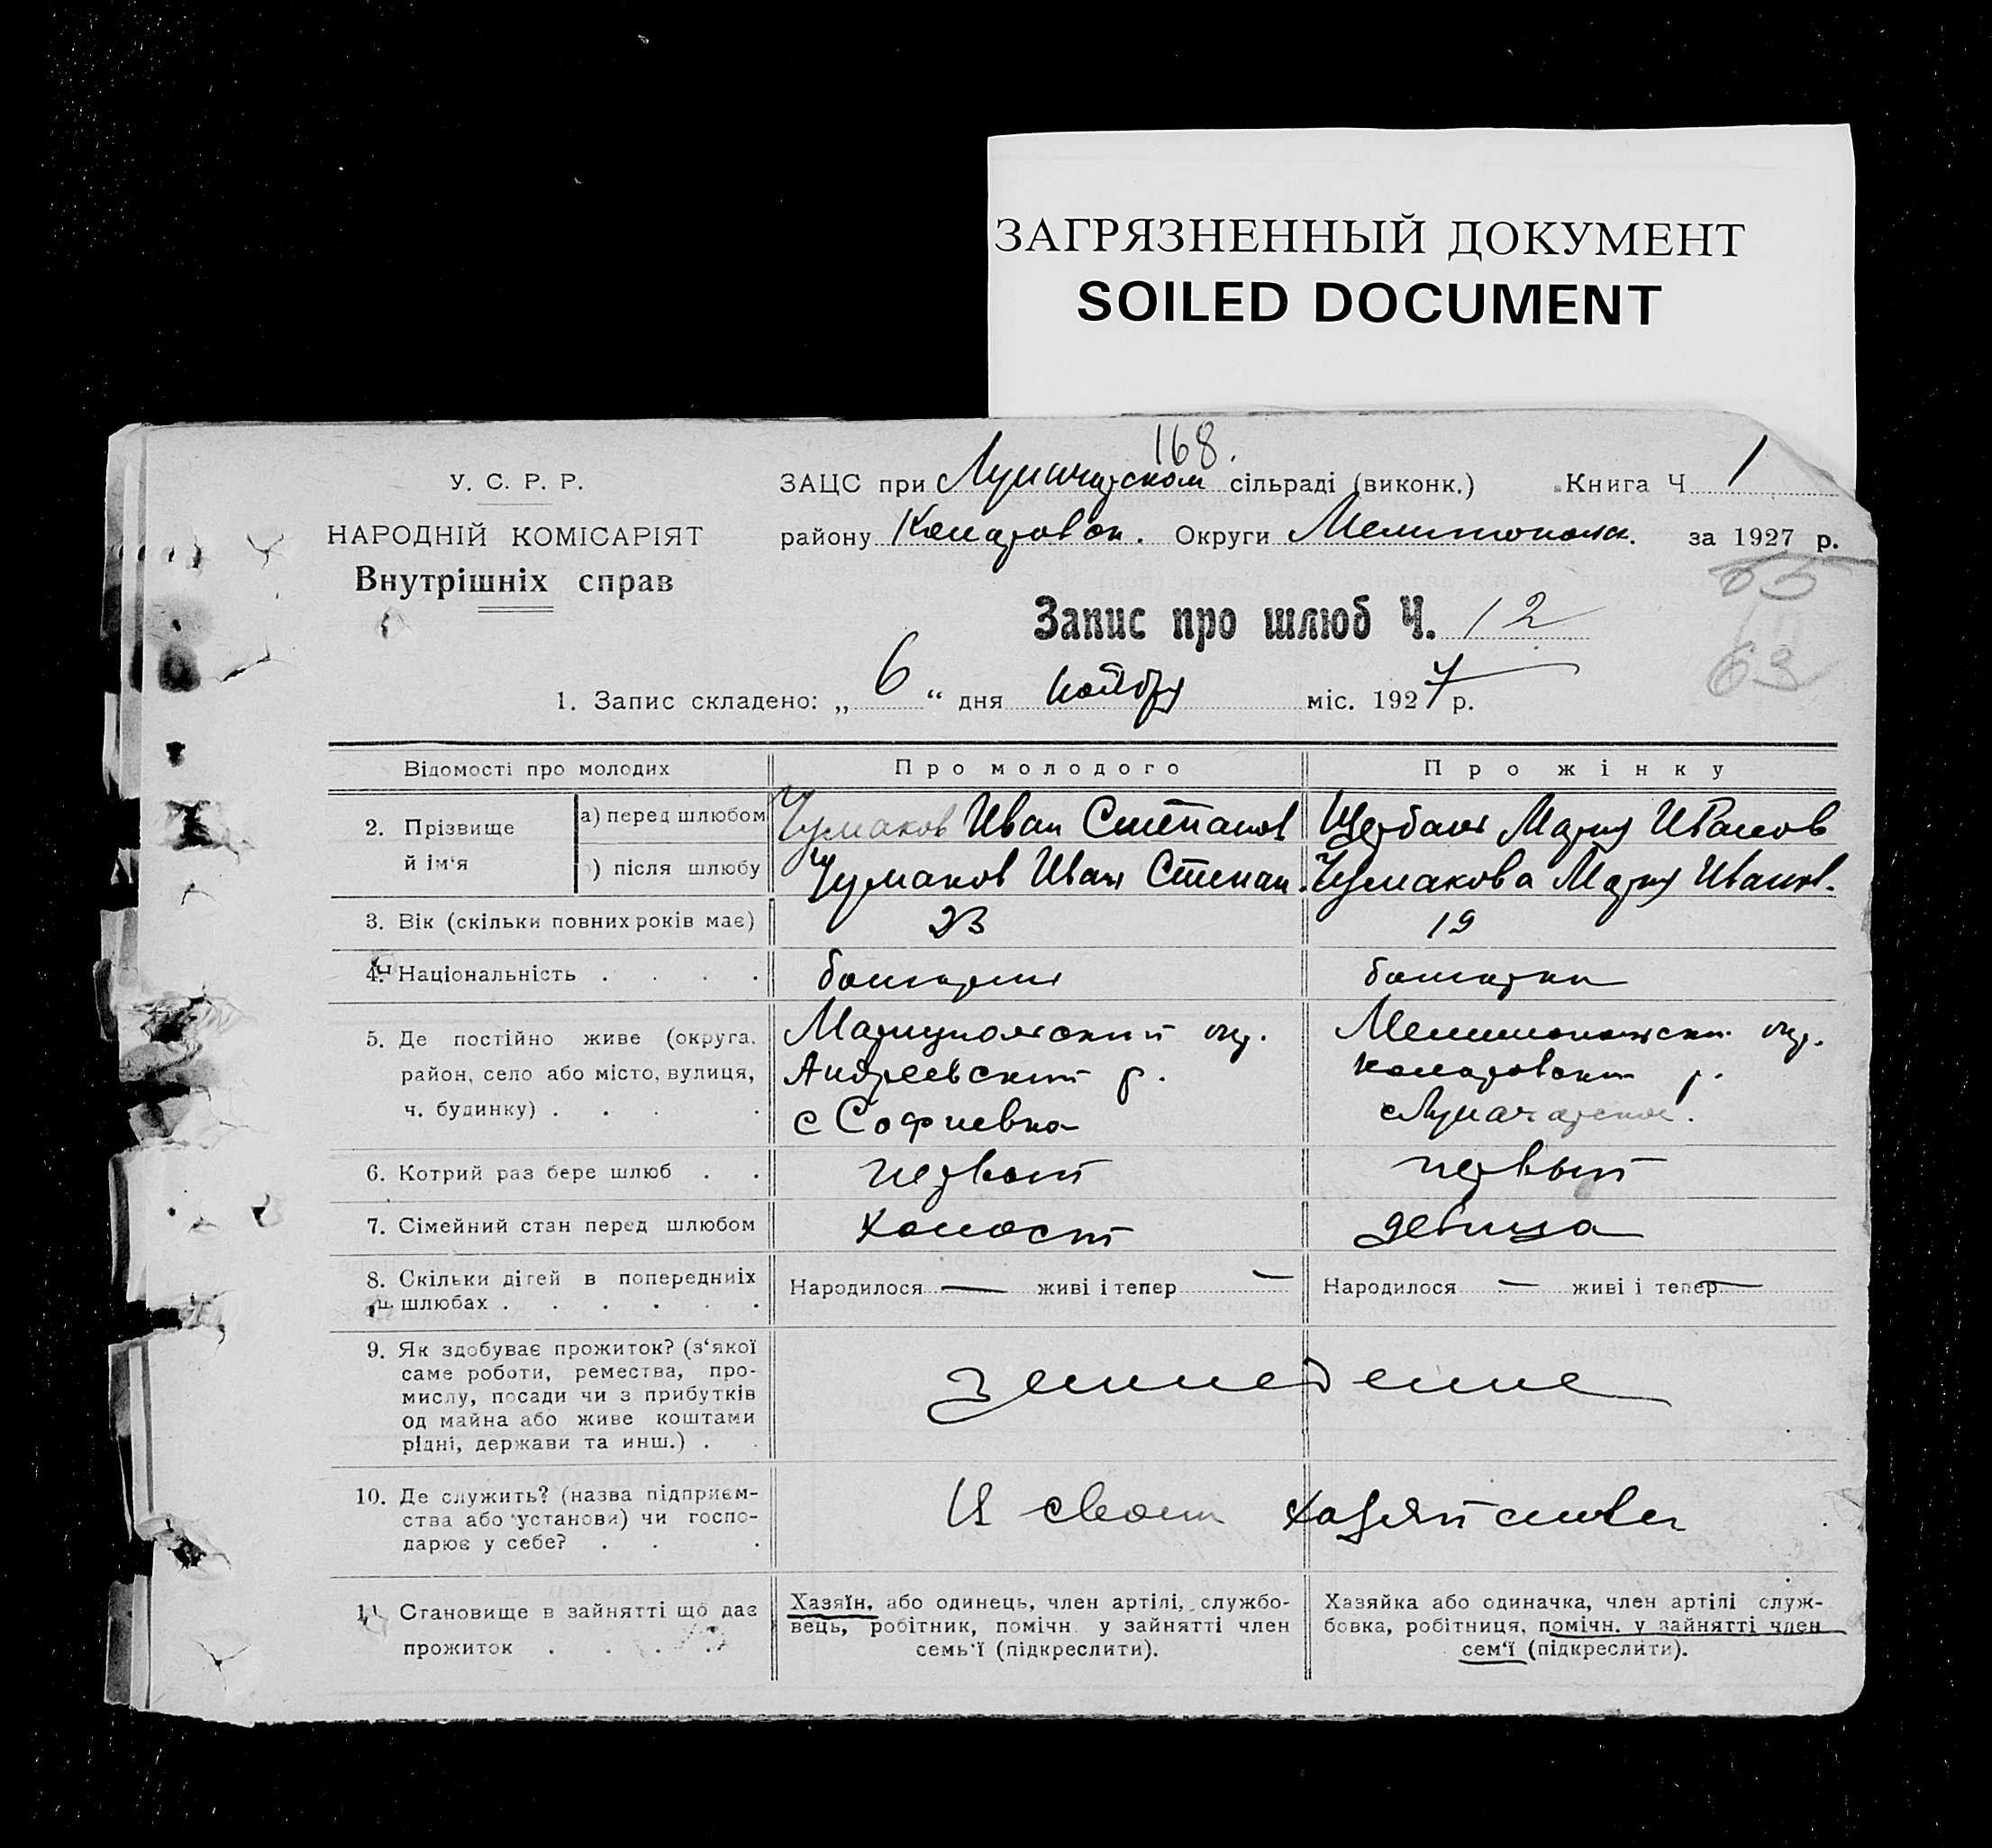 ЗАГРЯЗНЕННЫЙ ДОКУМЕНТ
SOILED DOCUMENT
168.
У. С. Р. Р.
НАРОДНІЙ КОМІСАРІЯТ
Внутрішніх справ
ЗАЦС при Луначарском сільраді (виконк.) Книга Ч 1
району Комаровск. Округи Мелитопольск. за 1927 р.
65
63
Запис про шлюб Ч. 12
1. Запис складено: „ 6 “ дня ноября міс. 1927 р.
Відомості про молодих Про молодого Про жінку
2. Прізвище й ім‘я
а) перед шлюбом Чумаков Иван Степанов Щербань Мария Иванов
) після шлюбу Чумаков Иван Степан. Чумакова Мария Иванов.
3. Вік (скільки повних років має) 23 19
4. Національність . . . . болгарин болгарка
5. Де постійно живе (округа, Мариупольский окр. Мелитопольский окр.
район, село або місто, вулиця, Андреевский р. Комаровский р.
ч. будинку) . . . . с Софиевка с Луначарское.
6. Котрий раз бере шлюб . . первый первый
7. Сімейний стан перед шлюбом холост девица
8. Скільки дітей в попередниіх Народилося — живі і тепер — Народилося — живі і тепер —
шлюбах . . . . . .
9. Як здобуває прожиток? (з‘якої
саме роботи, ремества, про-
мислу, посади чи з прибутків
од майна або живе коштами
рідні, держави та инш.) . .
земледелие
10. Де служить? (назва підприєм-
ства або установи) чи госпо-
дарює у себе? . . .
В своем хозяйстве
11. Становище в зайнятті що дає
прожиток . . . .
Хазяїн, або одинець, член артілі, службо-
вець, робітник, помічн. у зайнятті член
семь‘ї (підкреслити).
Хазяйка або одиначка, член артілі служ-
бовка, робітниця, помічн. у зайнятті член
сем‘ї (підкреслити).